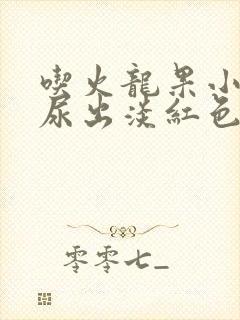 喫火龍果小
尿出淡紅色
零零七_